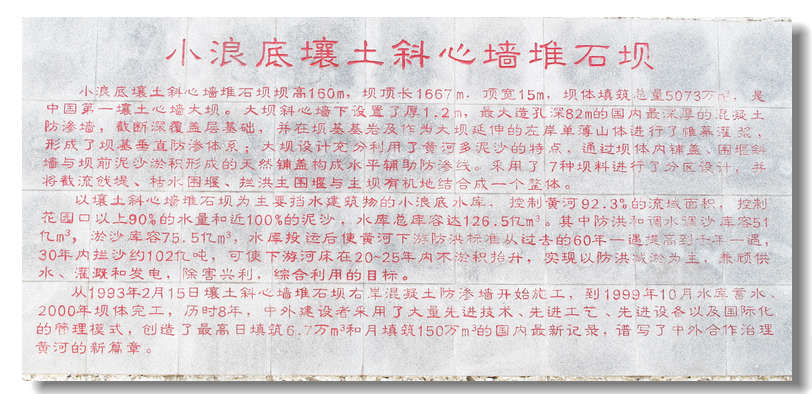 小浪底壤土斜心墙堆石坝
小浪底壤土斜心墙堆石坝坝高160m，坝顶长1667m，顶宽15m，坝体填筑总量5073万m³，是
中国第一壤土心墙大坝。大坝斜心墙下设置了厚1.2m，最大造孔深82m的国内最深厚的混凝土
防渗墙，截断深覆盖层基础，并在坝基基岩及作为大坝延伸的左岸单薄山体进行了帷幕灌浆，
形成了坝基垂直防渗体系；大坝设计充分利用了黄河多泥沙的特点，通过坝体内铺盖、围堰斜
墙与坝前泥沙淤积形成的天然铺盖构成水平辅助防渗线。采用了7种坝料进行了分区设计，并
将截流戗堤、枯水围堰、拦洪主围堰与主坝有机地结合成一个整体。
以壤土斜心墙堆石坝为主要挡水建筑物的小浪底水库，控制黄河92.3%的流域面积，控制
花园口以上90%的水量和近100%的泥沙，水库总库容达126.5亿m³。其中防洪和调水调沙库容51
亿m³，淤沙库容75.5亿m³，水库投运后使黄河下游防洪标准从过去的60年一遇提高到千年一遇，
30年内拦沙约102亿吨，可使下游河床在20~25年内不淤积抬升，实现以防洪减淤为主，兼顾供
水、灌溉和发电，除害兴利，综合利用的目标。
从1993年2月15日壤土斜心墙堆石坝右岸混凝土防渗墙开始施工，到1999年10月水库蓄水、
2000年坝体完工，历时8年，中外建设者采用了大量先进技术、先进工艺、先进设备以及国际化
的管理模式，创造了最高日填筑6.7万m³和月填筑150万m³的国内最新记录，谱写了中外合作治理
黄河的新篇章。